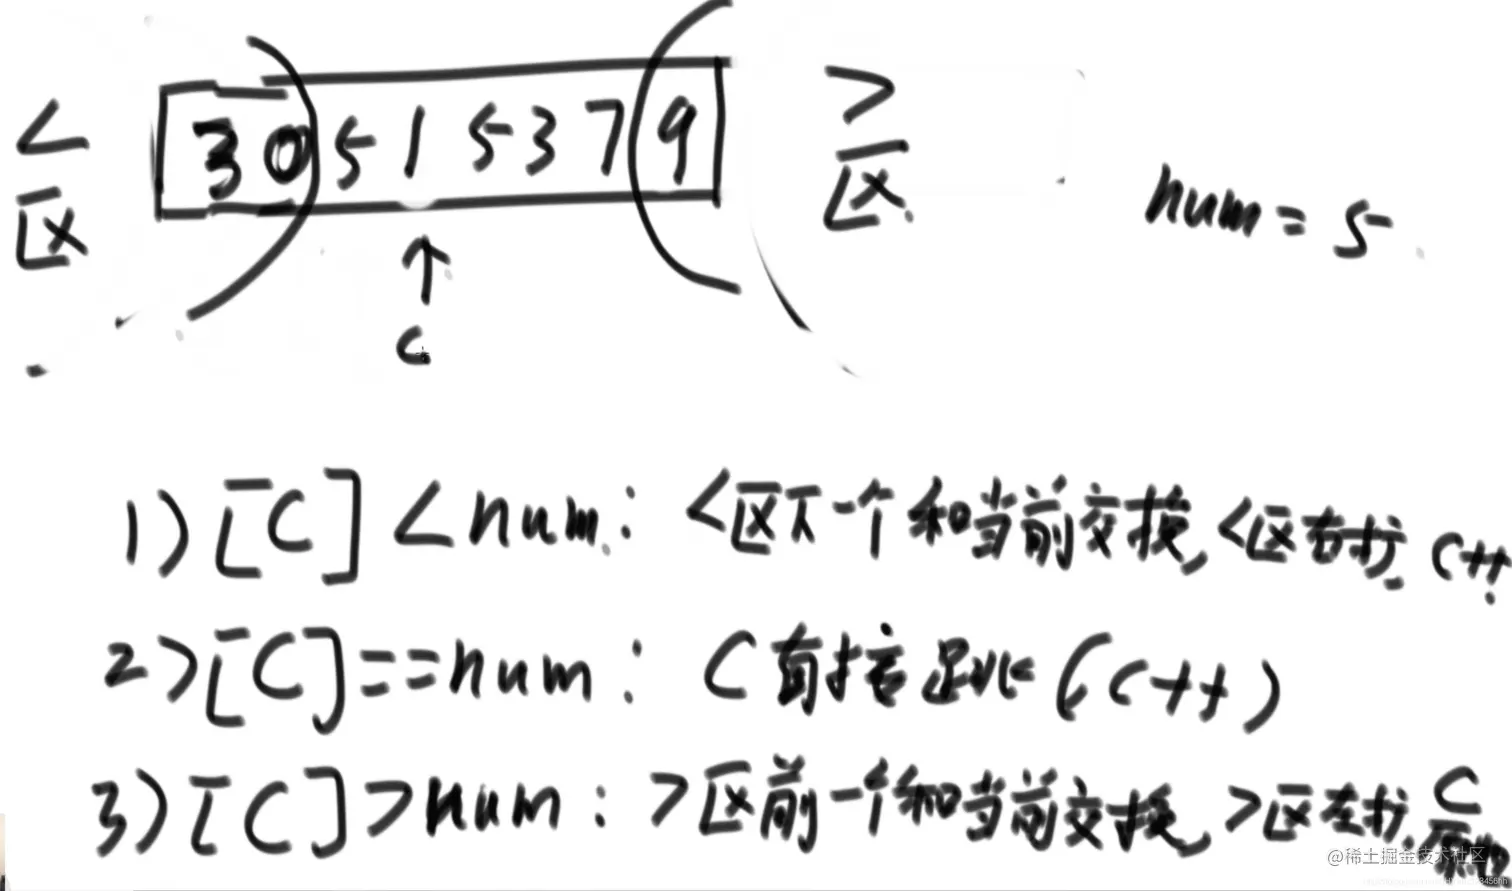 < 区 3 0 5 1 5 3 7 9 > 区
num = 5
C
1) [C] < num: <区下一个和当前交换, <区右扩, C++
2) [C] == num: C直接跳 (C++)
3) [C] > num: >区前一个和当前交换, >区左扩, C原地
@稀土掘金技术社区